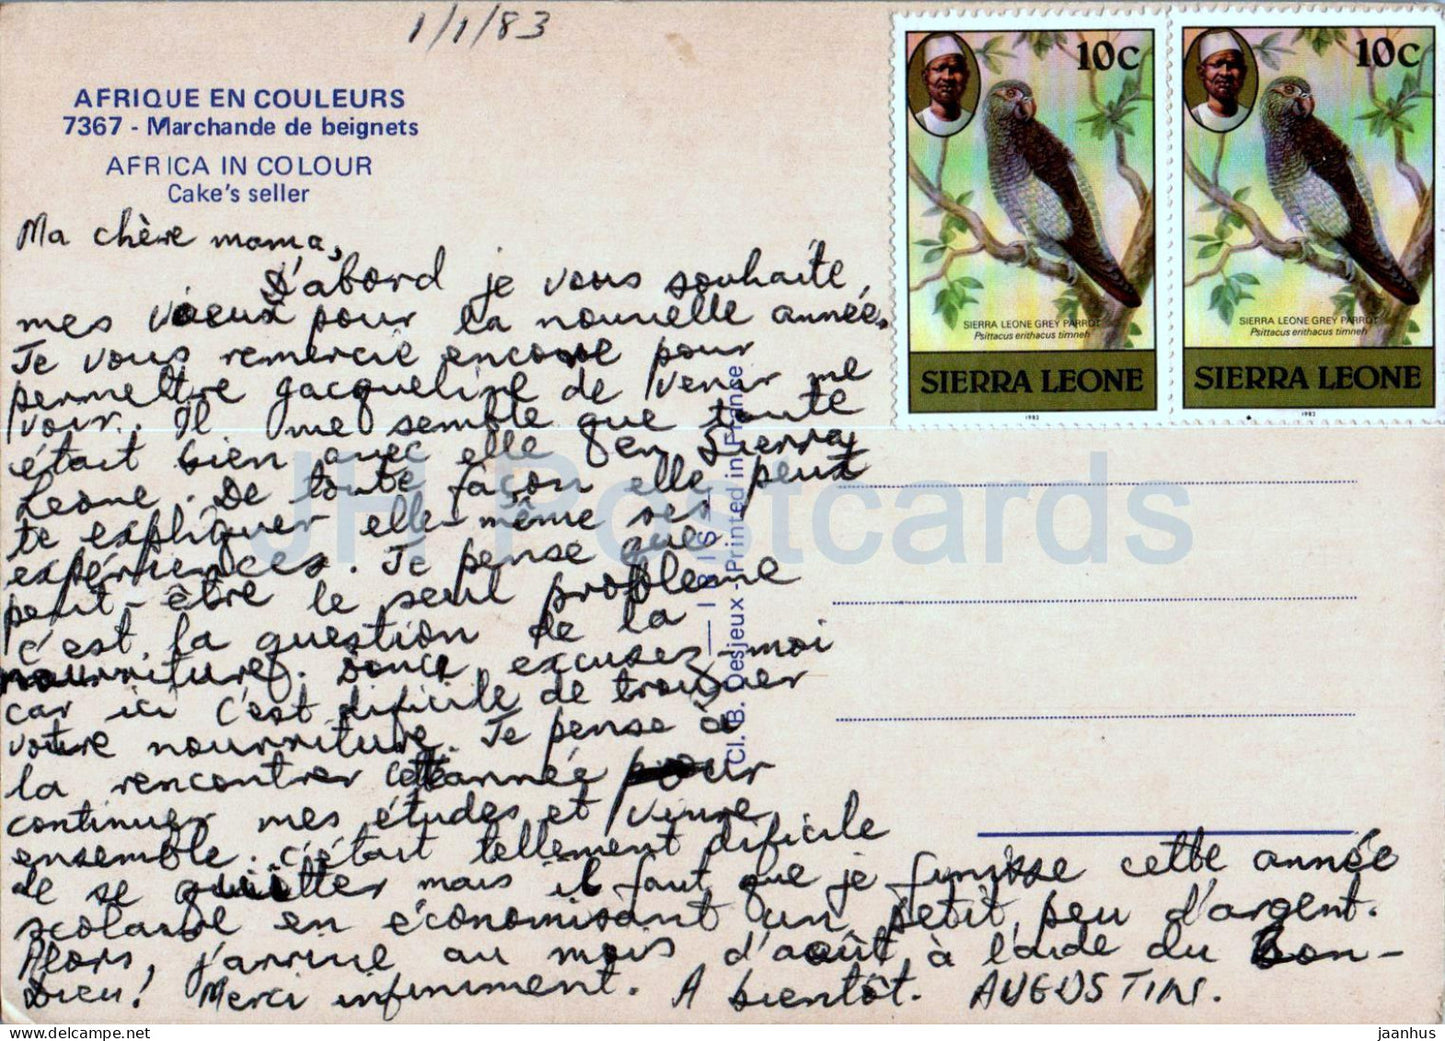 1/1/83
AFRIQUE EN COULEURS
7367 - Marchande de beignets
AFRICA IN COLOUR
Cake's seller
Ma chère mama,
D'abord je vous souhaite
mes voeux pour la nouvelle année.
Je vous remercie encore pour
permettre Jacqueline de venir me
voir. Il me semble que toute
était bien avec elle en Sierra
Leone. De toute façon elle peut
te expliquer elle-même ses
expériences. Je pense que
peut-être le seul problème
c'est la question de la
nourriture. Donc excusez-moi
car ici c'est dificile de trouver
votre nourriture. Je pense à
la rencontrer cette année pour
continuer mes études et vivre
ensemble. C'était tellement dificile
de se quitter mais il faut que je finisse cette année
scolaire en économisant un petit peu d'argent.
Alors, j'arrive au mois d'août à l'aide du Bon-
Dieu! Merci infiniment. A bientôt. AUGUSTIN.
10c
SIERRA LEONE GREY PARROT
Psittacus erithacus timneh
SIERRA LEONE
1982
10c
SIERRA LEONE GREY PARROT
Psittacus erithacus timneh
SIERRA LEONE
1983
Cl. B. Desjeux - Printed in France
— I R I S —
JH Postcards
jaanhus